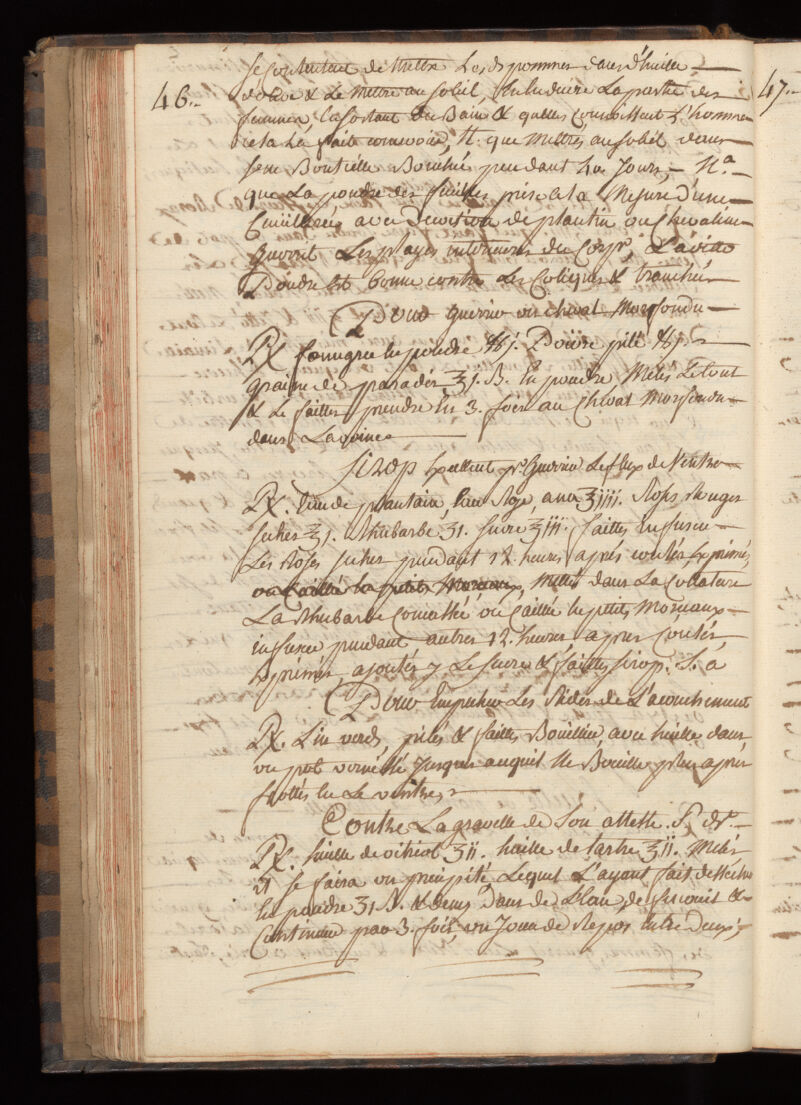 se contentant de Mettre Les d. pommes dans d'huille
46..
d'olive & Le Mettre au soleil, En Enduire La partie des
47..
femmes, En sortant du Bain & quelles Connoissent L'homme
cela Le fait concevoir, It. que Mettés au soleil dans
sene Boutielle Bouchée pendant 40 Jours, It.a
que La poudre des feuilles prise a La Mesure d'une
Cuillerée avec Decoction de plantin ou Chevaline
Guerit Les playes interieures du Corps, La ditte
Poudre Est bonne contre Les Coliques & tranchée
Pour Guerir un cheval Morfondu
Rx fenugrec En poudre ℔ j. Poivre pilé ℔ j.
Graine de paradis ʒ j. ß. En poudre, Melés Le tout
& Le faittes prendre En 3. fois au Cheval Morfondu
dans L'avoine
Sirop Excellent pr. Guerir Le flux de Ventre
Rx. Eau de plantain, Eau Rose, ana ℥ iiii. Roses Rouges
seches ℥ j. Rhubarbe ʒ j. sucre ℥ iii. faittes Infuser
Les Roses seches pendant 12. heures, après coulés, Exprimés,
ou Caillé En petits Morceaux, Mettés dans La Collature
La Rhubarbe Concassée ou Caillée En petits Morceaux
infuser pendant autres 12. heures, apres Coulés
Exprimés, ajoutés y Le sucre & faittes sirop. S. a
Pour Empecher Les Rides de L'acouchement
Rx. Lin verd, pilés & faittes Bouillir, avec huille dans
un pot vernissé Jusques a quil Ne Bouille plus, après
frottés En Le ventre,
Contre La gravelle de Son attesté. P. Dr.
Rx. huille de vitriol ʒ ii. huille de tartre ʒ ii. Melés
Il se faira un precipité Lequel L'ayant fait dessécher
En poudre ʒ j. ß. & demy Dans de L'eau, de &
Continuer par 3. fois, un Jour de Repos Entre Deux,